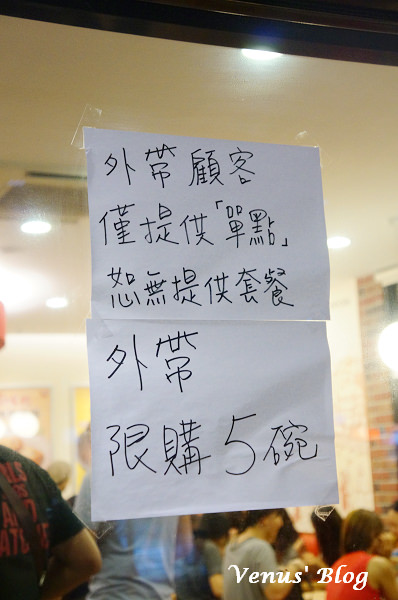 外帶顧客
僅提供「單點」
恕無提供套餐
外帶
限購5碗
Venus' Blog